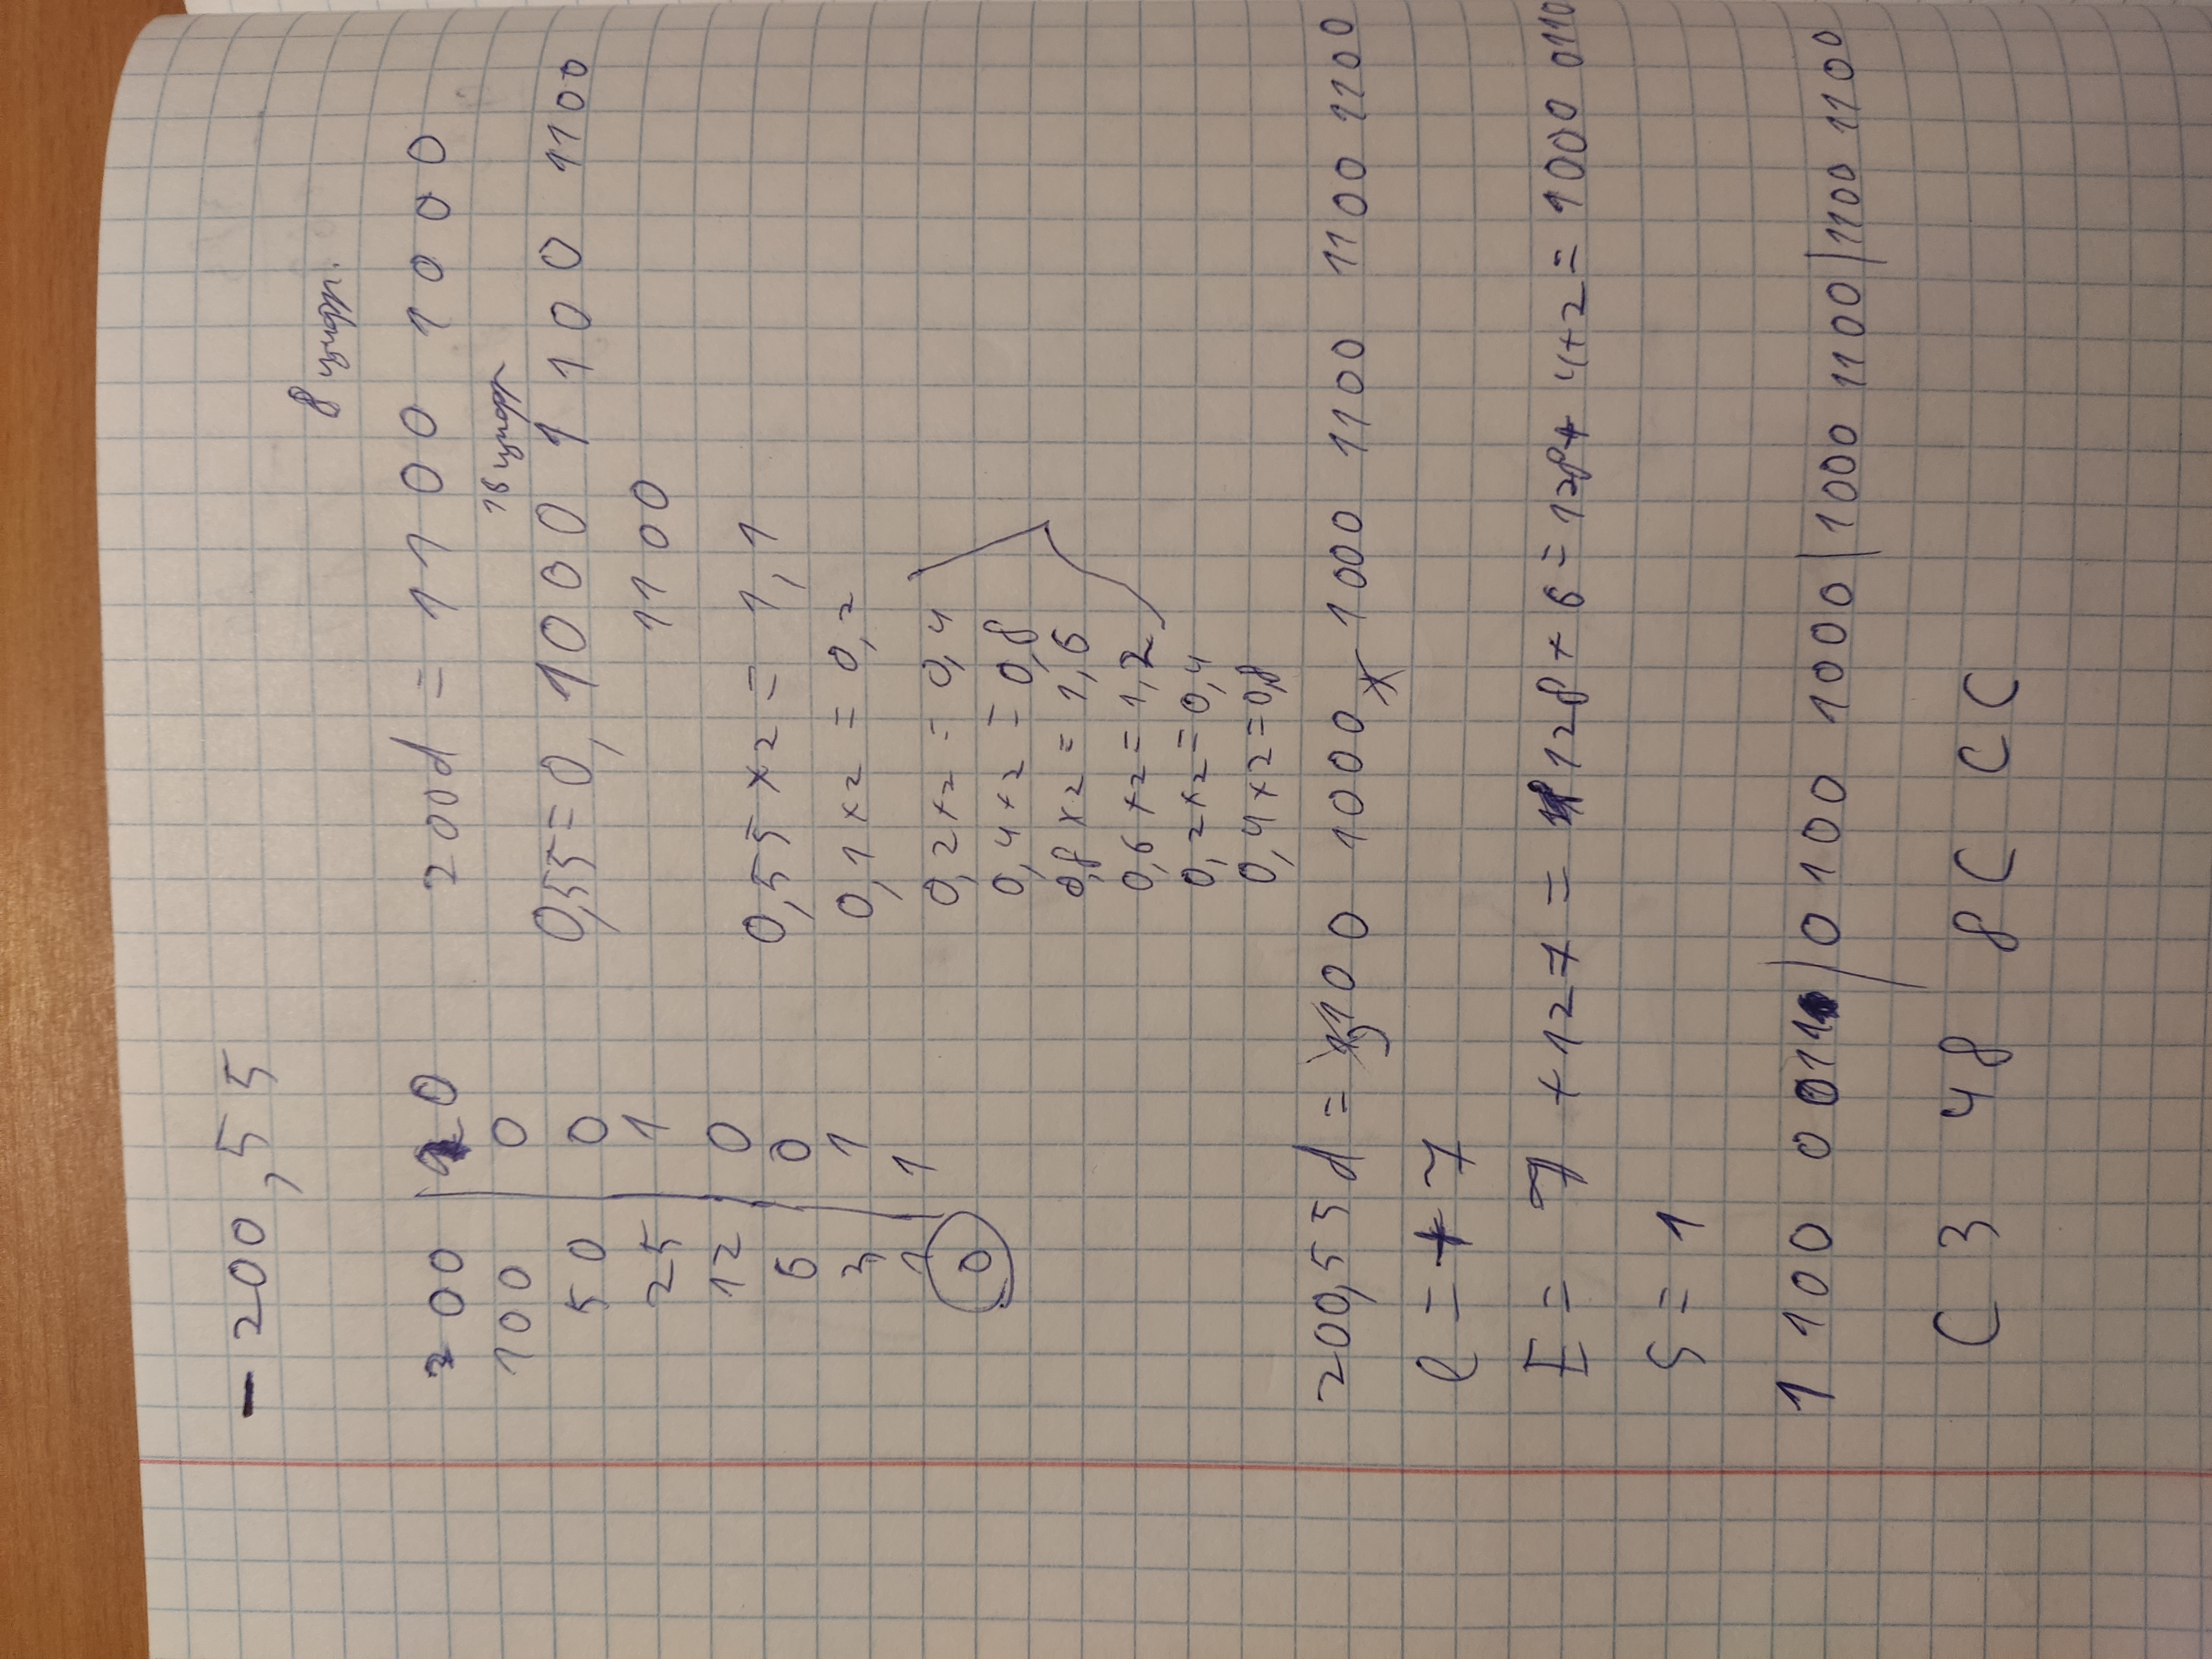 - 200,55
8 цифр.
200 | 0
100 | 0
50 | 0
25 | 1
12 | 0
6 | 0
3 | 1
1 | 1
0
200d = 1100 1000
16 цифр
0,55 = 0, 1000 1100 1100
1100
0,55 × 2 = 1,1
0,1 × 2 = 0,2
0,2 × 2 = 0,4
0,4 × 2 = 0,8
0,8 × 2 = 1,6
0,6 × 2 = 1,2
0,2 × 2 = 0,4
0,4 × 2 = 0,8
200,55d = 1,100 1000 1000 1100 1100 1100
e = + 7
E = 7 + 127 = 128 + 6 = 128 + 4 + 2 = 1000 0110
S = 1
1 100 0011 / 0 100 1000 | 1000 1100 | 1100 1100
C3 48 8C CC